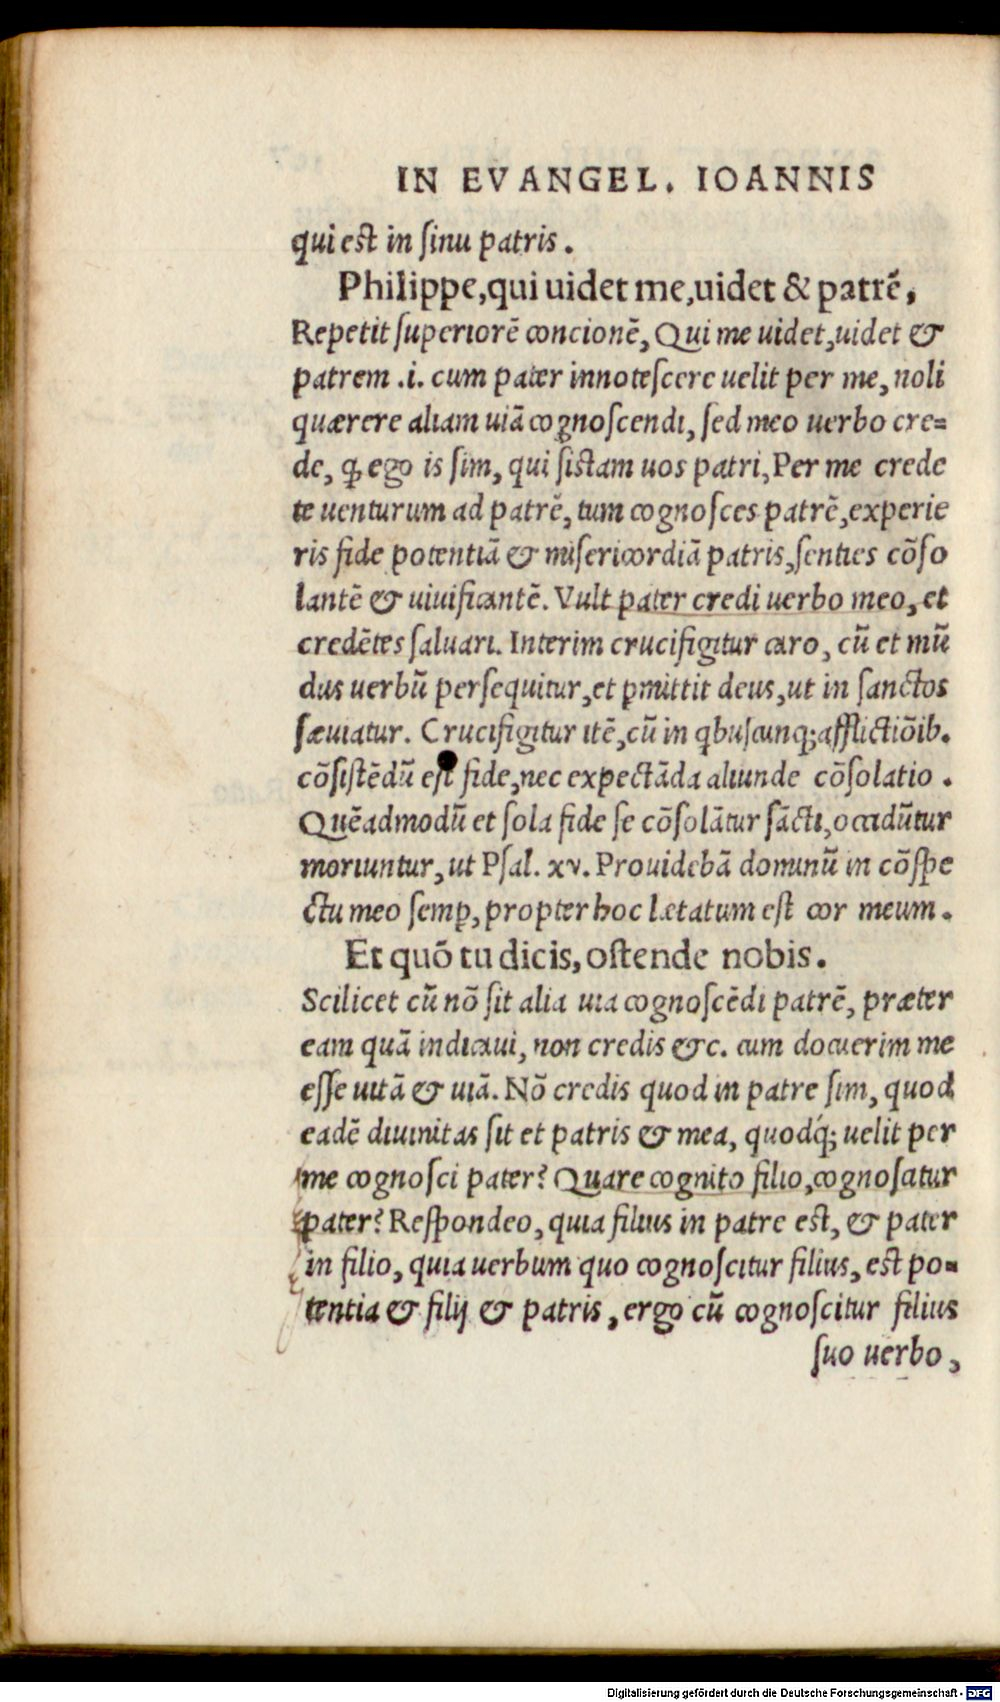 IN EVANGEL. IOANNIS
qui est in ſinu patris.
Philippe,qui uidet me,uidet & patrē,
Repetit ſuperiorē concionē, Qui me uidet,uidet &
patrem .i. cum pater innoteſcere uelit per me, noli
quærere aliam uiā cognoſcendi, ſed meo uerbo cre=
de, ꝙ ego is ſim, qui ſiſtam uos patri, Per me crede
te uenturum ad patrē, tum cognoſces patrē,experie
ris fide potentiā & miſericordiā patris,ſenties cōſo
lantē & uiuificantē. Vult pater credi uerbo meo, et
credētes ſaluari. Interim crucifigitur caro, cū et mū
dus uerbū perſequitur,et ꝑmittit deus,ut in ſanctos
ſæuiatur. Crucifigitur itē,cū in qbuſcunq; afflictiōib.
cōſiſtēdū eſt fide,nec expectāda aliunde cōſolatio.
Quēadmodū et ſola fide ſe cōſolātur ſācti,occidūtur
moriuntur, ut Pſal. xv. Prouidebā dominū in cōſpe
ctu meo ſemꝑ, propter hoc lætatum eſt cor meum.
Et quō tu dicis, oſtende nobis.
Scilicet cū nō ſit alia uia cognoſcēdi patrē, præter
eam quā indicaui, non credis &c. cum docuerim me
eſſe uitā & uiā. Nō credis quod in patre ſim, quod
eadē diuinitas ſit et patris & mea, quodq́; uelit per
me cognoſci pater? Quare cognito filio,cognoſcitur
pater? Reſpondeo, quia filius in patre eſt, & pater
in filio, quia uerbum quo cognoſcitur filius, eſt po=
tentia & filij & patris, ergo cū cognoſcitur filius
ſuo uerbo,
Digitalisierung gefördert durch die Deutsche Forschungsgemeinschaft - DFG